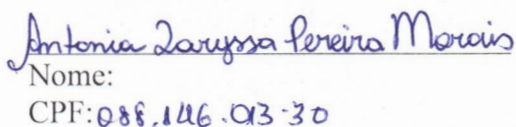 Antonia Laryssa Pereira Morais
Nome:
CPF: 088.146.013-30